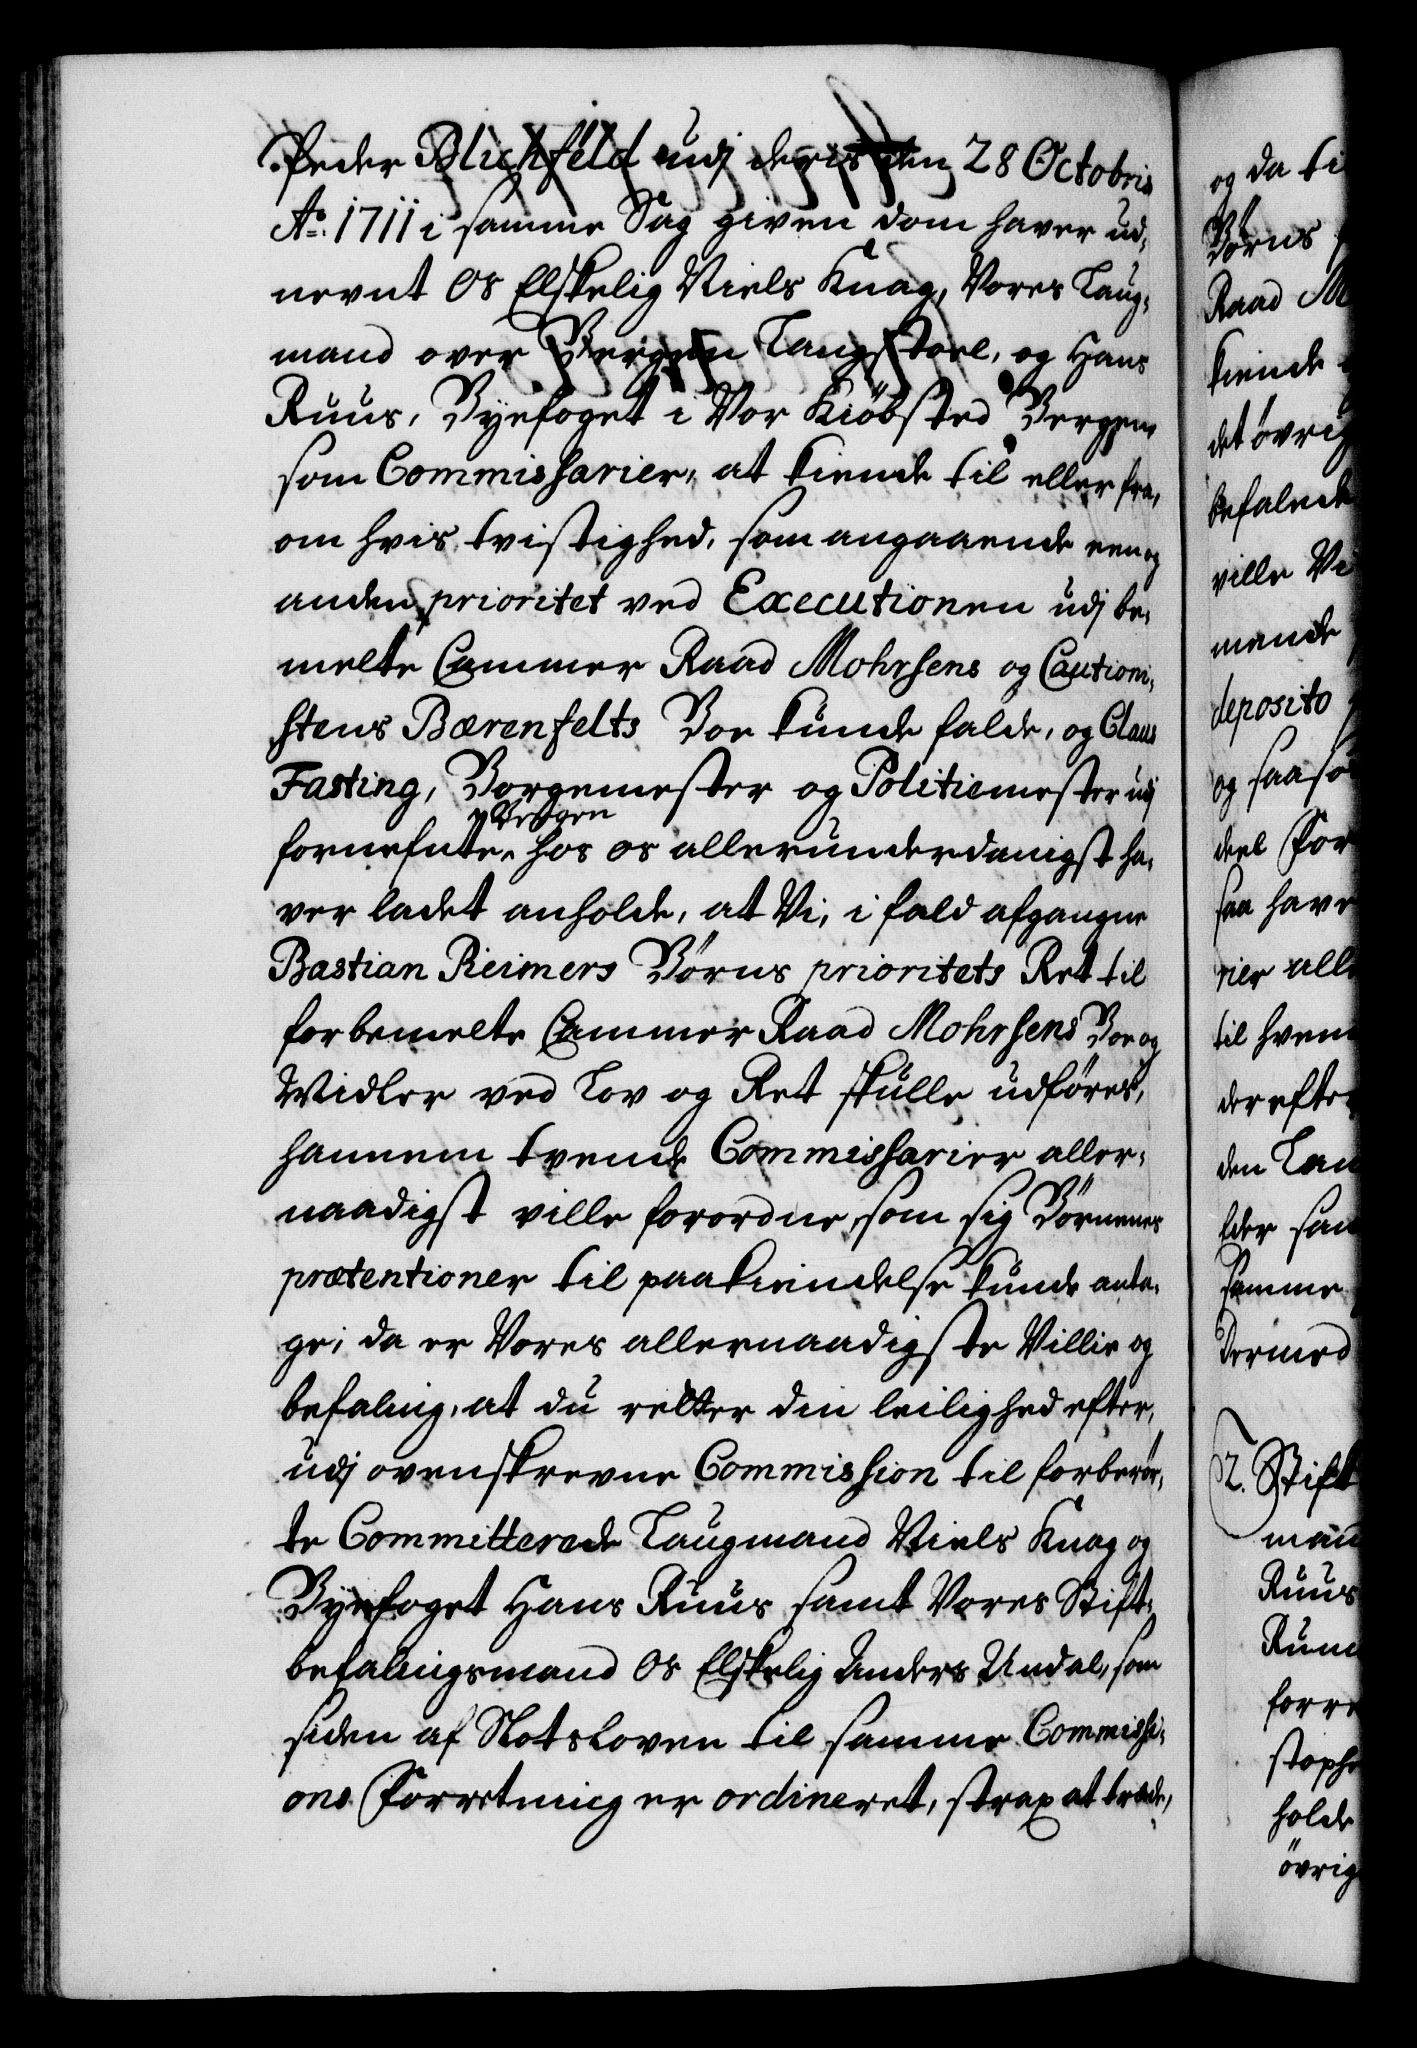 Peder Blichfeld udj deris den 28 Octobris
Ao. 1711 i samme Sag given dom haver ud¬
nevnt Os Elskelig Niels Knag, Vores Laug¬
mand over Bergen Laugstoel, og Hans
Ruus, Byefoget i Vor Kiöbsted Bergen
som Commissarier, at kiende til eller fra,
om hvis tvistighed, som angaaende een og
anden prioritet ved Executionen udj be¬
melte Cammer Raad Mohrsens og Cautioni¬
stens Bærenfelts Boe kunde falde, og Claus
Fasting, Borgemester og Politiemester udj
Bergen
fornefnte hos os allerunderdanigst ha¬
ver ladet anholde, at Vi, i fald afgangne
Bastian Reimers Börns prioritets Ret til
forbemelte Cammer Raad Mohrsens Boe og
Midler ved Lov og Ret skulle udföres,
hannem tvende Commissarier aller¬
naadigst ville forordne, som sig Börnenes
prætentioner til paakiendelse kunde anta¬
ge; da er Vores allernaadigste Villie og
befaling, at du retter din leilighed efter,
udj ovenskrevne Commission til forberör¬
te Committerede Laugmand Niels Knag og
Byefoget Hans Ruus samt Vores Stift¬
befalingsmand Os Elskelig Anders Undal, som
siden af Slotsloven til samme Commissi¬
ons Forretning er ordineret, strax at træde,
og da ti
Börns
Raad M
kiende
det övrig
befalede
ville Vi
mende
deposito
og saasö
deel For
saa have
rier all
til hvem
der efter
den Lau
lder sam
samme
Dermed
2. Stift
man
Ruus
Rum
forre
stoph
holde
övrig